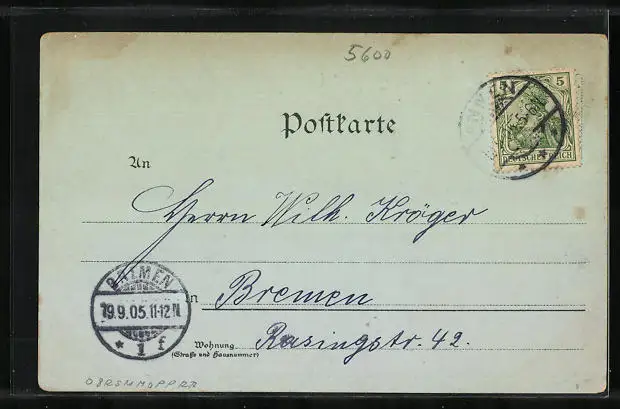 5600
5
DEUTSCHES REICH
Postkarte
An
Herrn Wilh. Kröger
BREMEN
19.9.05.11-12 N.
* 1 f
in Bremen
Wohnung
(Straße und Hausnummer)
Rasingstr. 42.